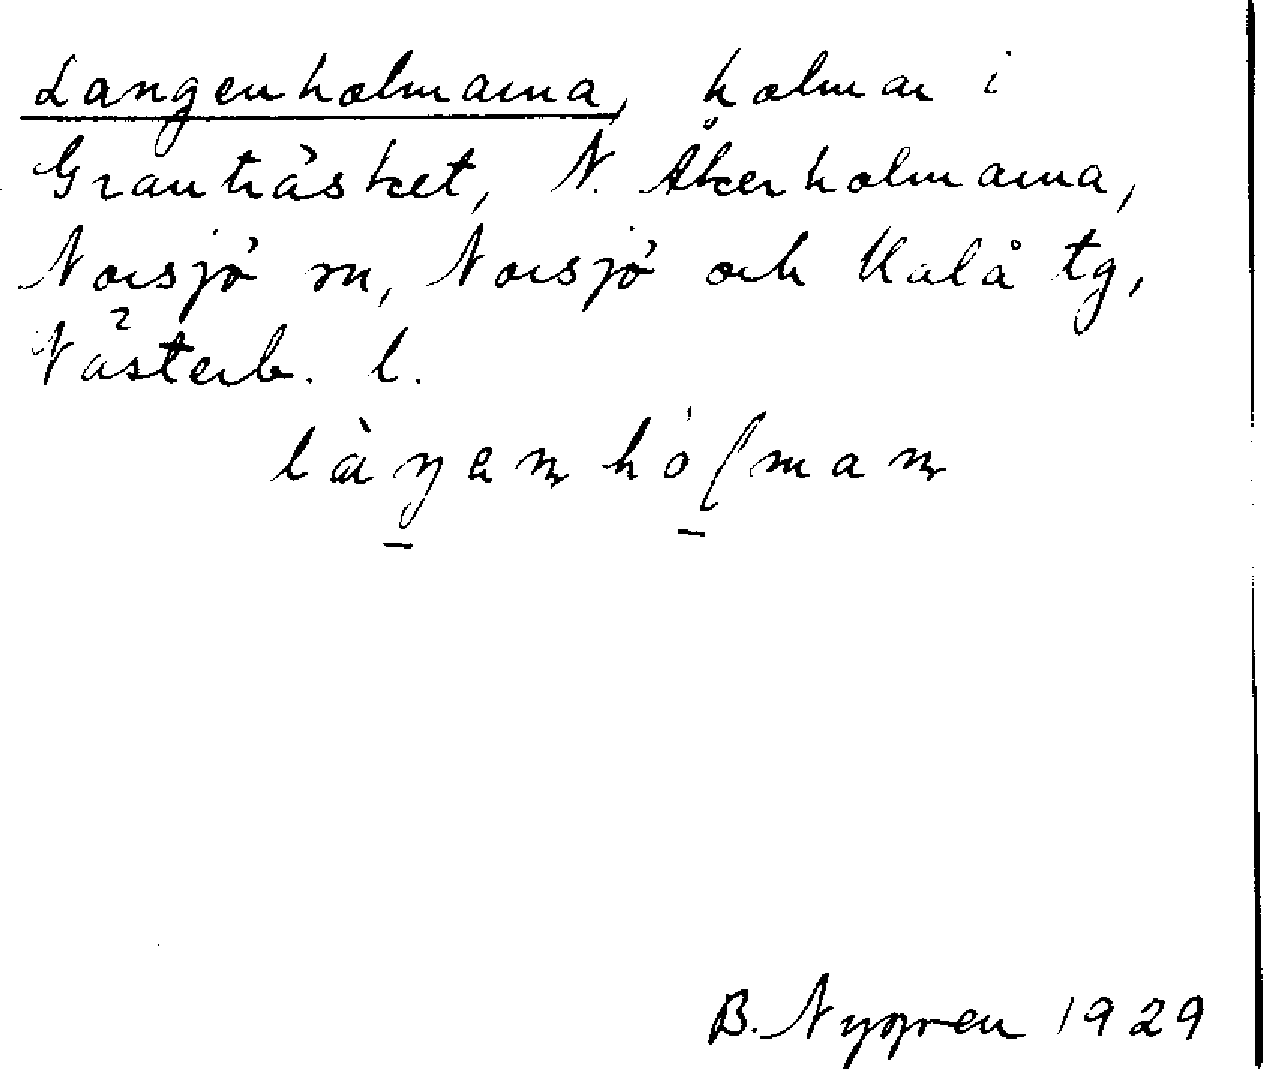 Langenholmarna, holmar i
Granträsket, N. Åkerholmarna,
Norsjö sn, Norsjö och Malå tg,
Västerb. l.
B. Nygren 1929